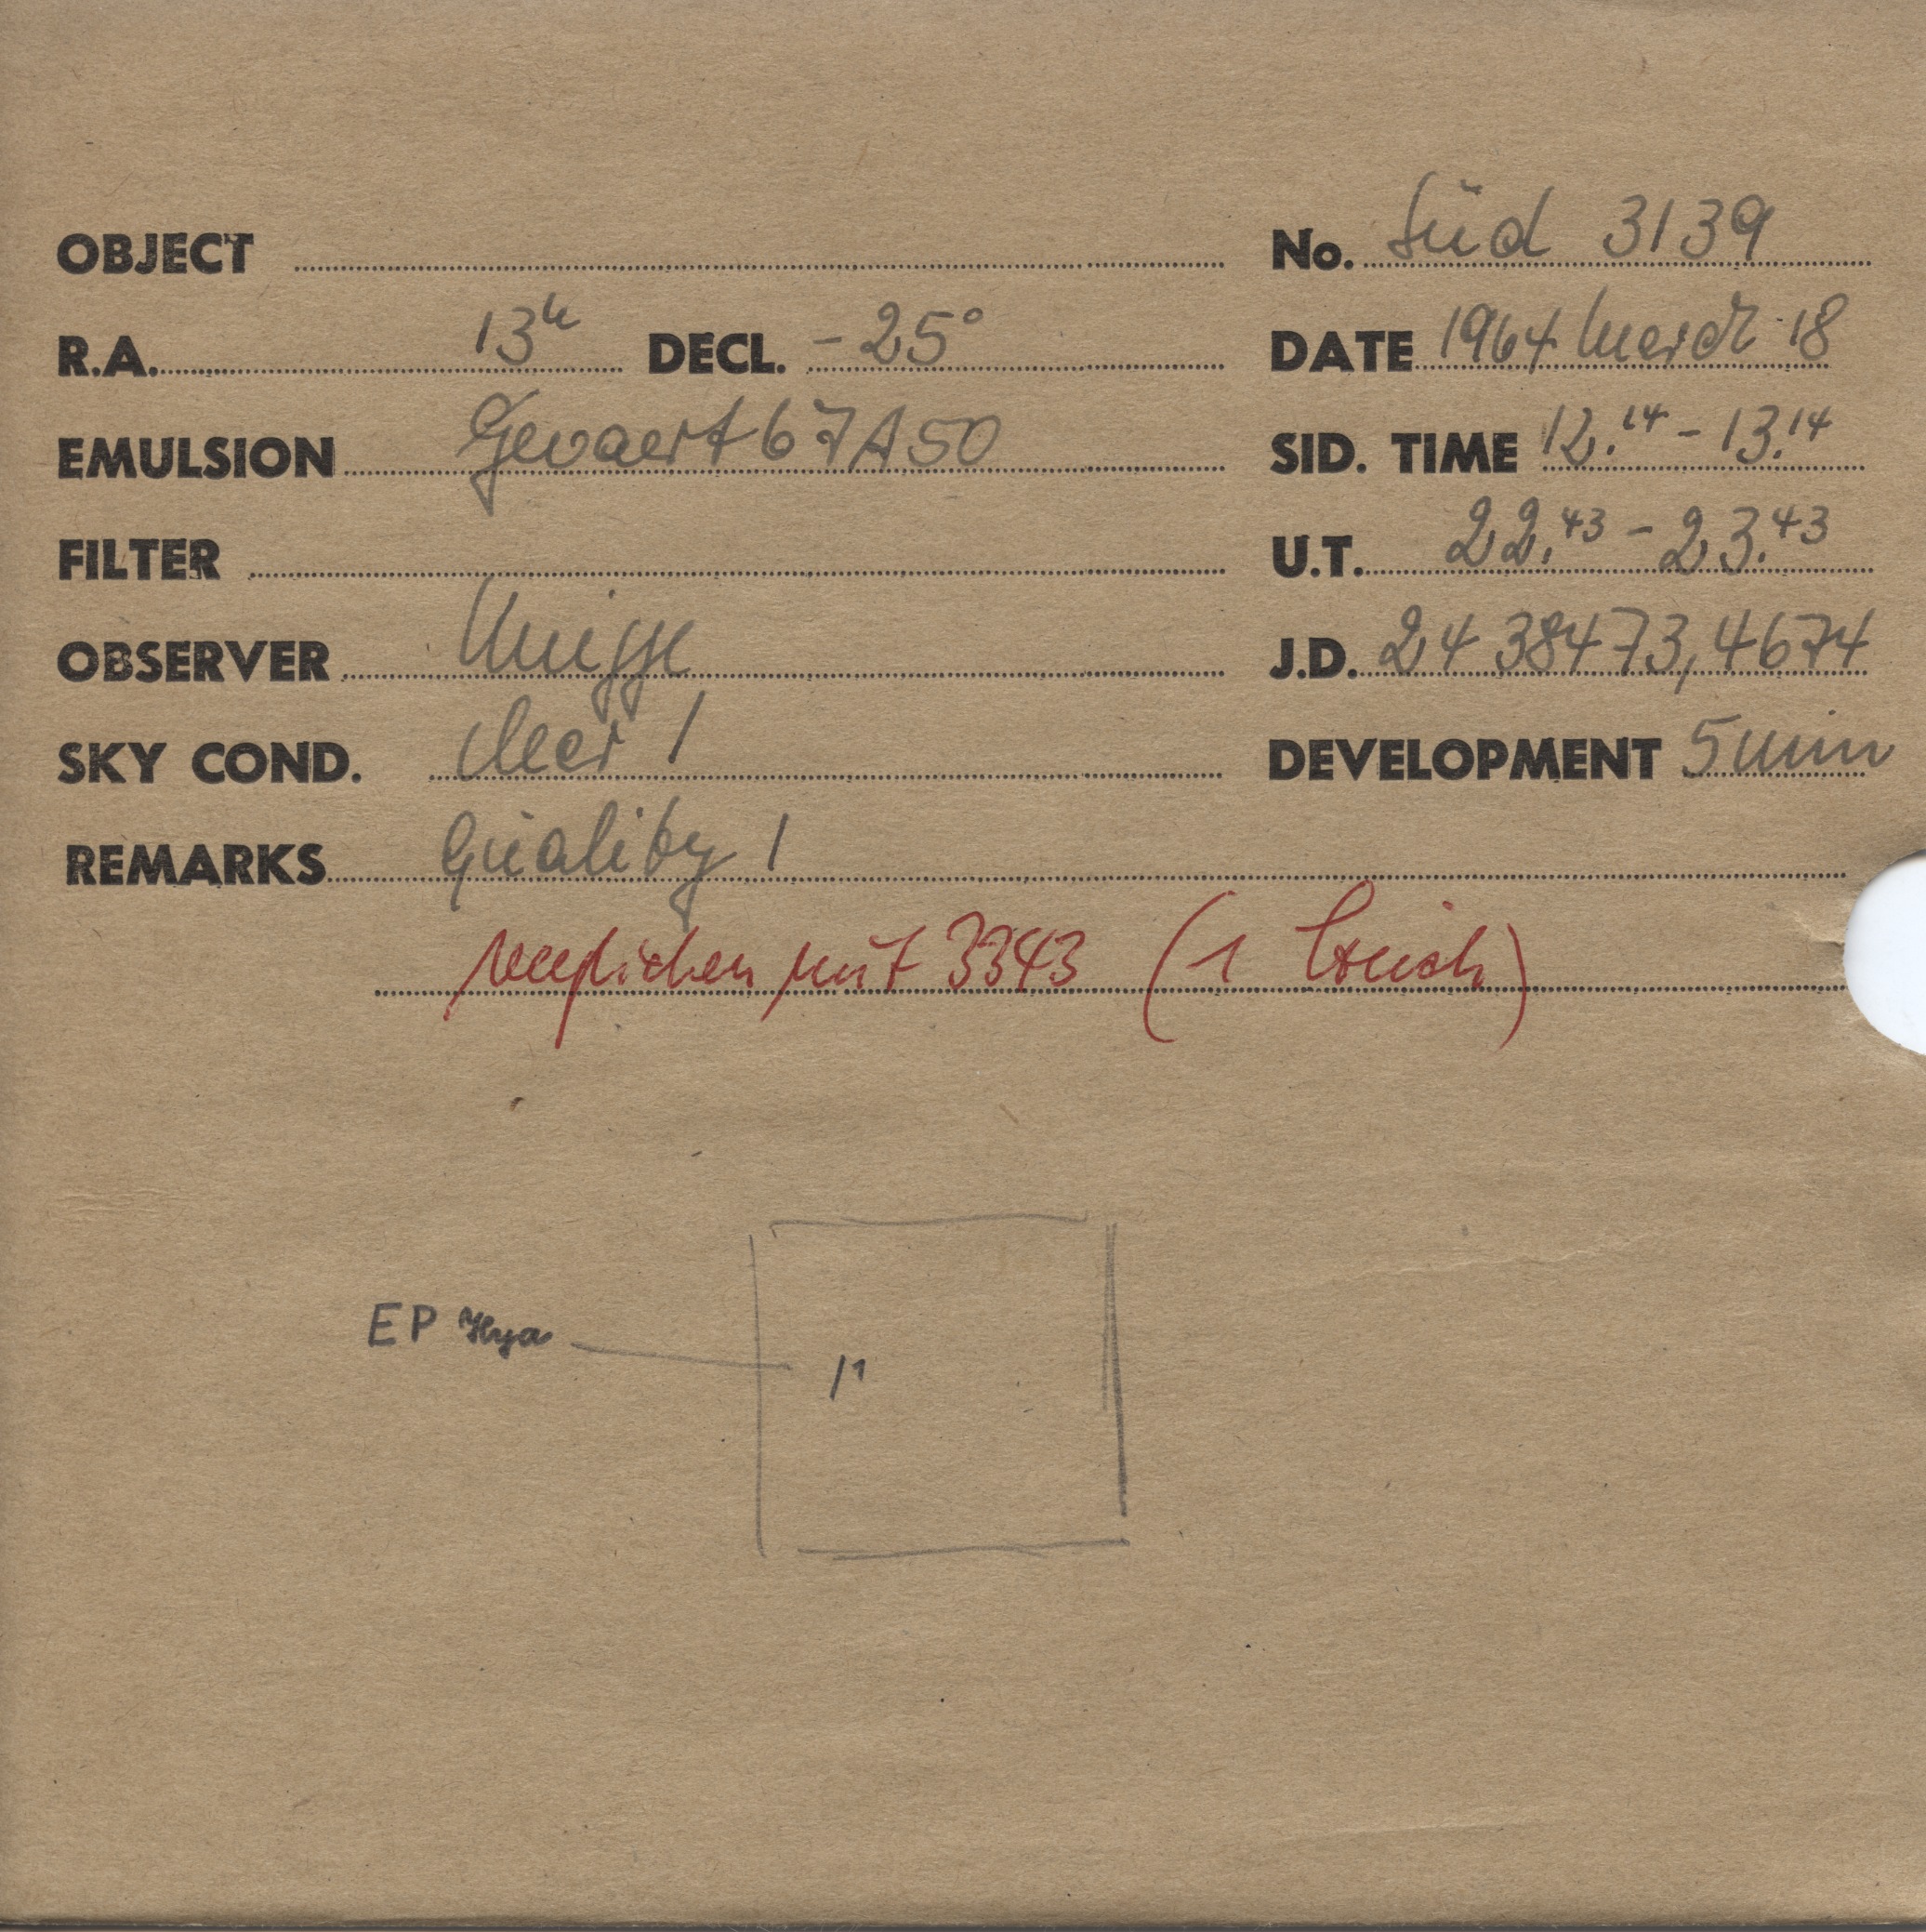 OBJECT No. Süd 3139
R.A. 13h DECL. -25° DATE 1964 March 18
EMULSION Gevaert 67A50 SID. TIME 12.14 - 13.14
FILTER U.T. 22.43 - 23.43
OBSERVER J.D. 24 38473,4674
SKY COND. clear 1 DEVELOPMENT 5 min
REMARKS Quality 1
verglichen mit 3343 (1 Strich)
EP Hya